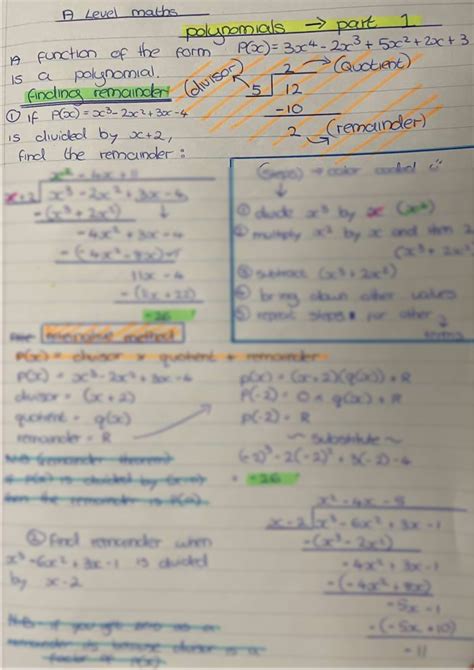 A Level maths
polynomials → part 1
A function of the form P(x) = 3x⁴ - 2x³ + 5x² + 2x + 3
is a polynomial.
finding remainder
(divisor) 2 → (Quotient)
5 12
-10
2 (remainder)
① if P(x) = x³ - 2x² + 3x - 4
is divided by x+2,
find the remainder :
x² - 4x + 11
x+2 x³ - 2x² + 3x - 4
-(x³ + 2x²) ↓
-4x² + 3x - 4
-(-4x² - 8x)
11x - 4
-(11x + 22)
-26
(steps) → color coded
① divide x³ by x (x²)
② multiply x² by x and then 2
(x³ + 2x²)
③ subtract (x³ + 2x²)
④ bring down other values
⑤ repeat steps for other
terms
method
P(x) = divisor × quotient + remainder
P(x) = x³ - 2x² + 3x - 4
divisor = (x+2)
quotient = q(x)
remainder = R
p(x) = (x+2)(q(x)) + R
P(-2) = 0 × q(x) + R
P(-2) = R
~ substitute ~
(-2)³ - 2(-2)² + 3(-2) - 4
= -26
N.B (remainder theorem)
if P(x) is divided by
then the remainder is
② find remainder when
x³ - 6x² + 3x - 1 is divided
by x - 2
x² - 4x - 5
x-2 x³ - 6x² + 3x - 1
-(x³ - 2x²)
-4x² + 3x - 1
-(-4x² + 8x)
-5x - 1
-(-5x + 10)
-11
N.B if you get zero as a
remainder its because divisor is a
factor of P(x)